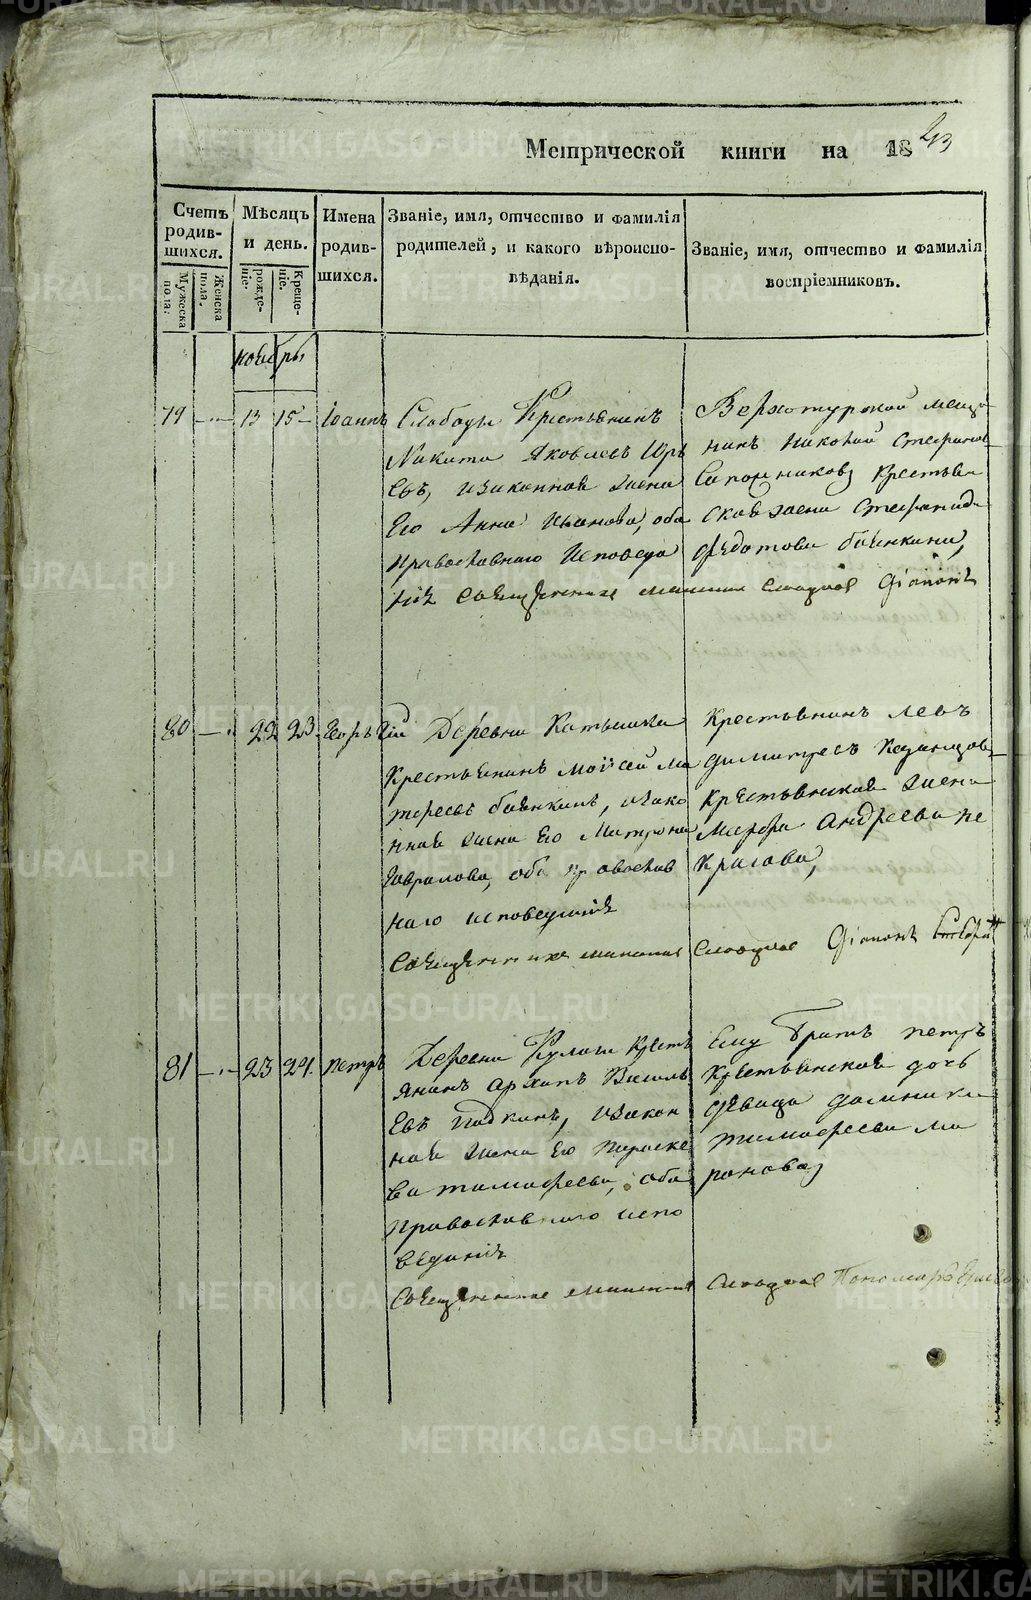 Метрической книги на 1843
Счетъ родив-шихся.
Мужеска пола.
Женска пола.
Мѣсяцъ и день.
рожде-ніе.
Креще-ніе.
Имена родив-шихся.
Званіе, имя, отчество и фамилія
родителей, и какого вѣроиспо-
вѣданія.
Званіе, имя, отчество и фамилія
воспріемниковъ.
ноября
79 13 15 Іоаннъ
Слободы Крестьянинъ
Никита Яковлевъ
евъ, изаконная жена
Его Анна Иванова, оба
православнаго Исповеда
нія
Верхотурской меща
нинъ Николай Стефановъ
Сапожниковъ Крестьян
ская жена Стефанида
Федотова баянкина,
80 22 23 Георгій
Деревни Катышки
Крестьянинъ Моисей Ма
тфеевъ баянкинъ, изако
нная жена Его Матрона
Гаврилова, оба православ
наго исповеданія
Крестьянинъ левъ
димитревъ
Крестьянская жена
Марфа Андреева Не
красова,
81 23 24 петръ
Деревни Кулиги Крестъ
янинъ Архипъ Василь
евъ изакон
ная жена Его параске
ва тимофеева, оба
православнаго испо
веданія
Ему братъ петръ
Крестьянская дочь
девица домника
тимофеева ма
ронова
METRIKI.GASO-URAL.RU